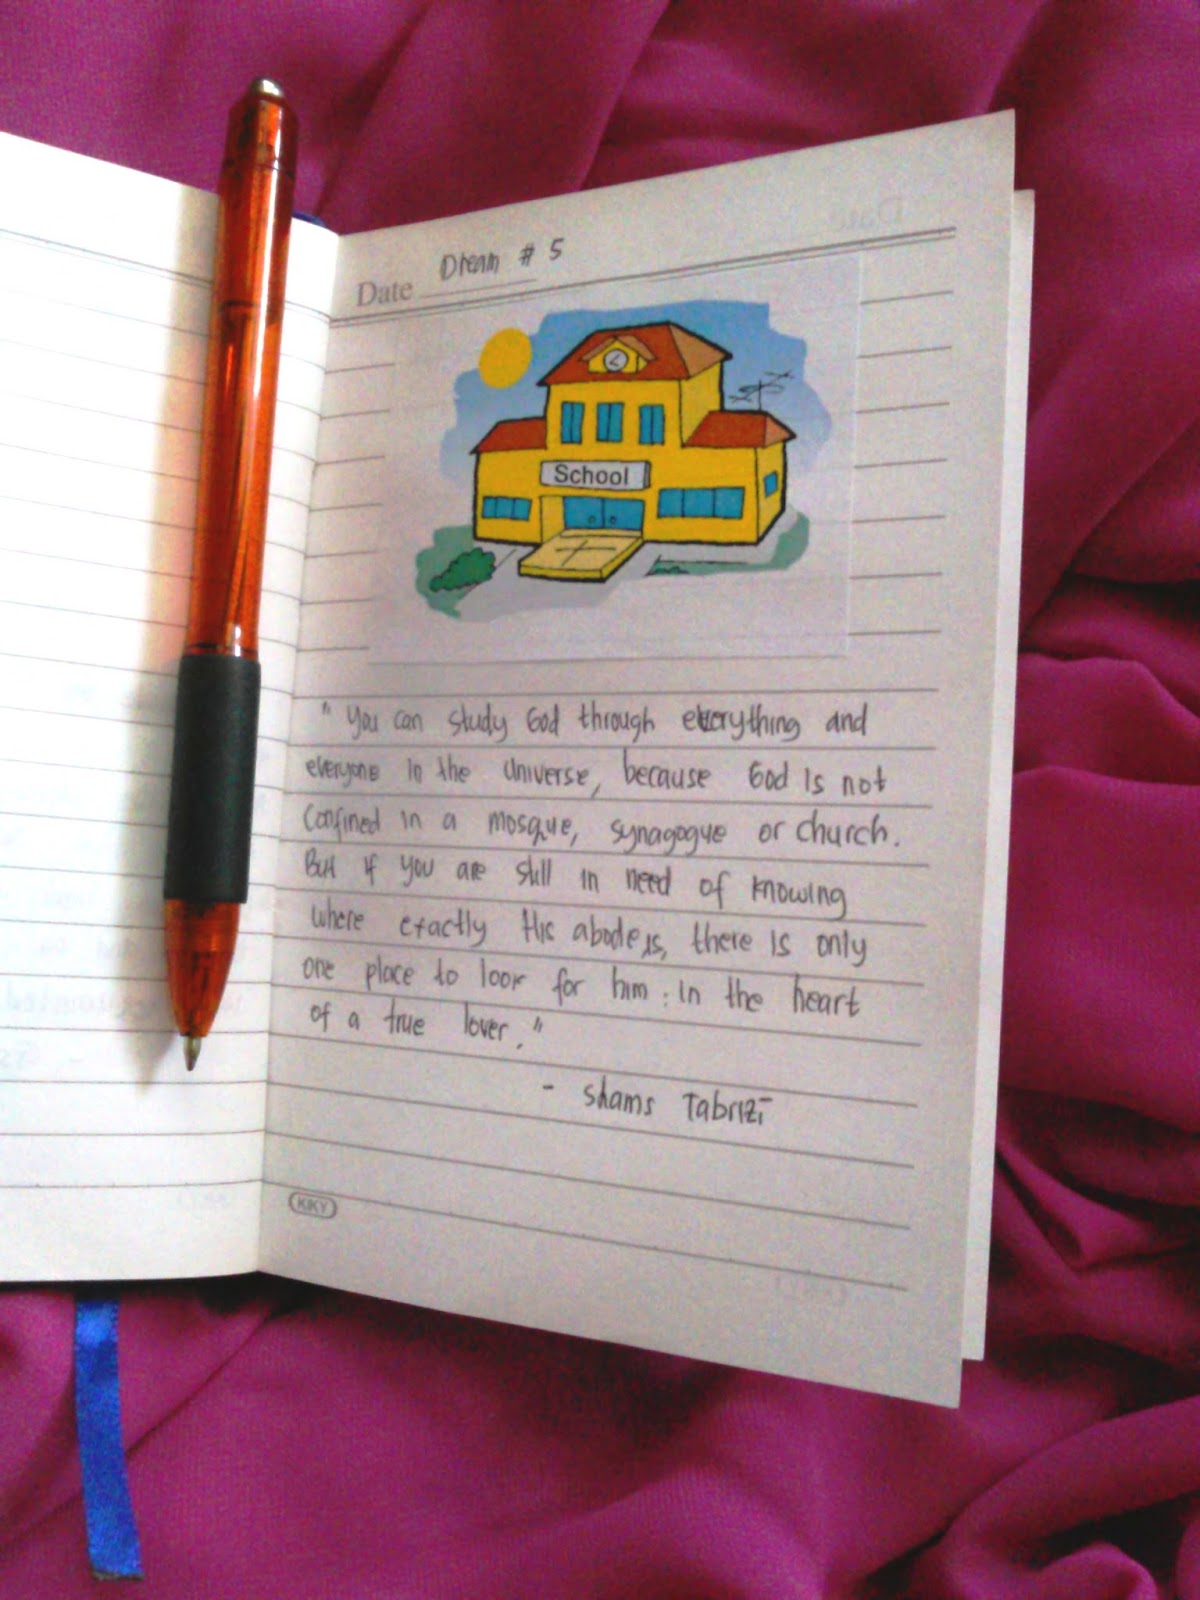 Date Dream # 5
School
" You can study God through everything and
everyone in the Universe, because God is not
confined in a mosque, synagogue or church.
But if you are still in need of knowing
where exactly His abode is, there is only
one place to look for him : in the heart
of a true lover. "
- Shams Tabrizi
KIKY